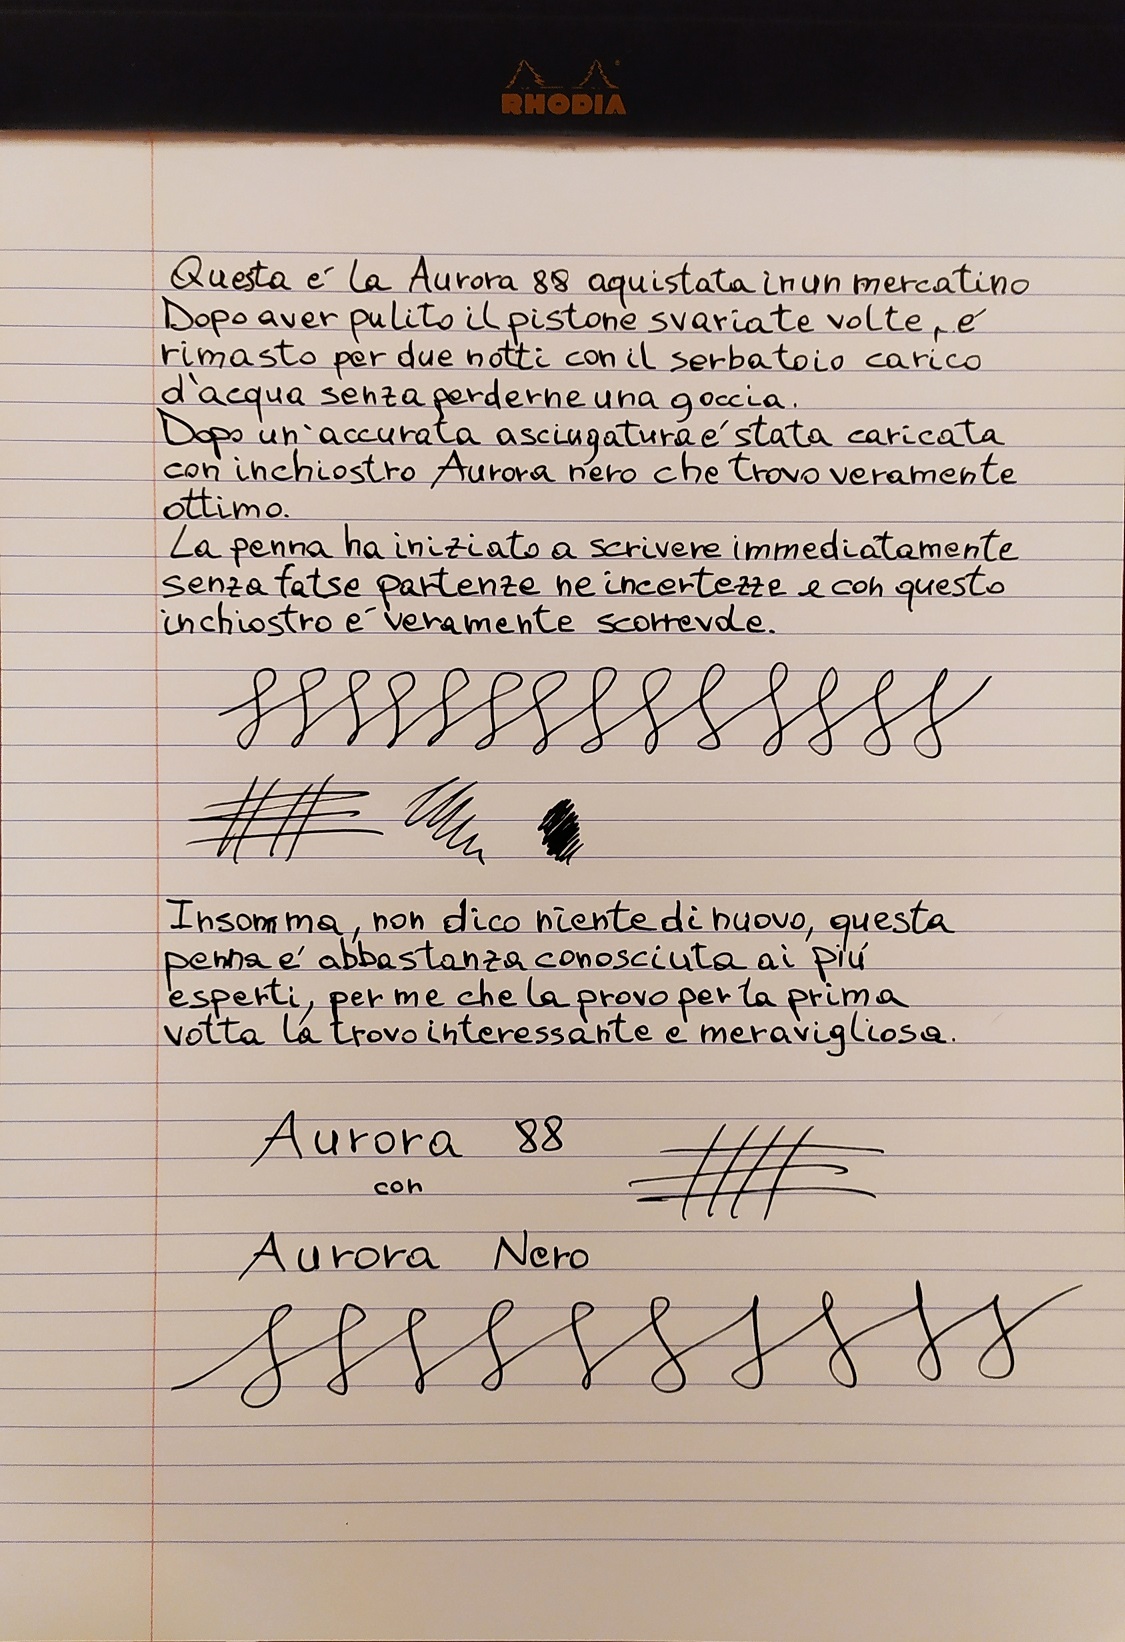 RHODIA
Questa é la Aurora 88 aquistata in un mercatino
Dopo aver pulito il pistone svariate volte, é
rimasto per due notti con il serbatoio carico
d'acqua senza perderne una goccia.
Dopo un'accurata asciugatura é stata caricata
con inchiostro Aurora nero che trovo veramente
ottimo.
La penna ha iniziato a scrivere immediatamente
senza false partenze ne incertezze e con questo
inchiostro é veramente scorrevole.
Insomma, non dico niente di nuovo, questa
penna é abbastanza conosciuta ai piú
esperti, per me che la provo per la prima
volta la trovo interessante e meravigliosa.
Aurora 88
con
Aurora Nero